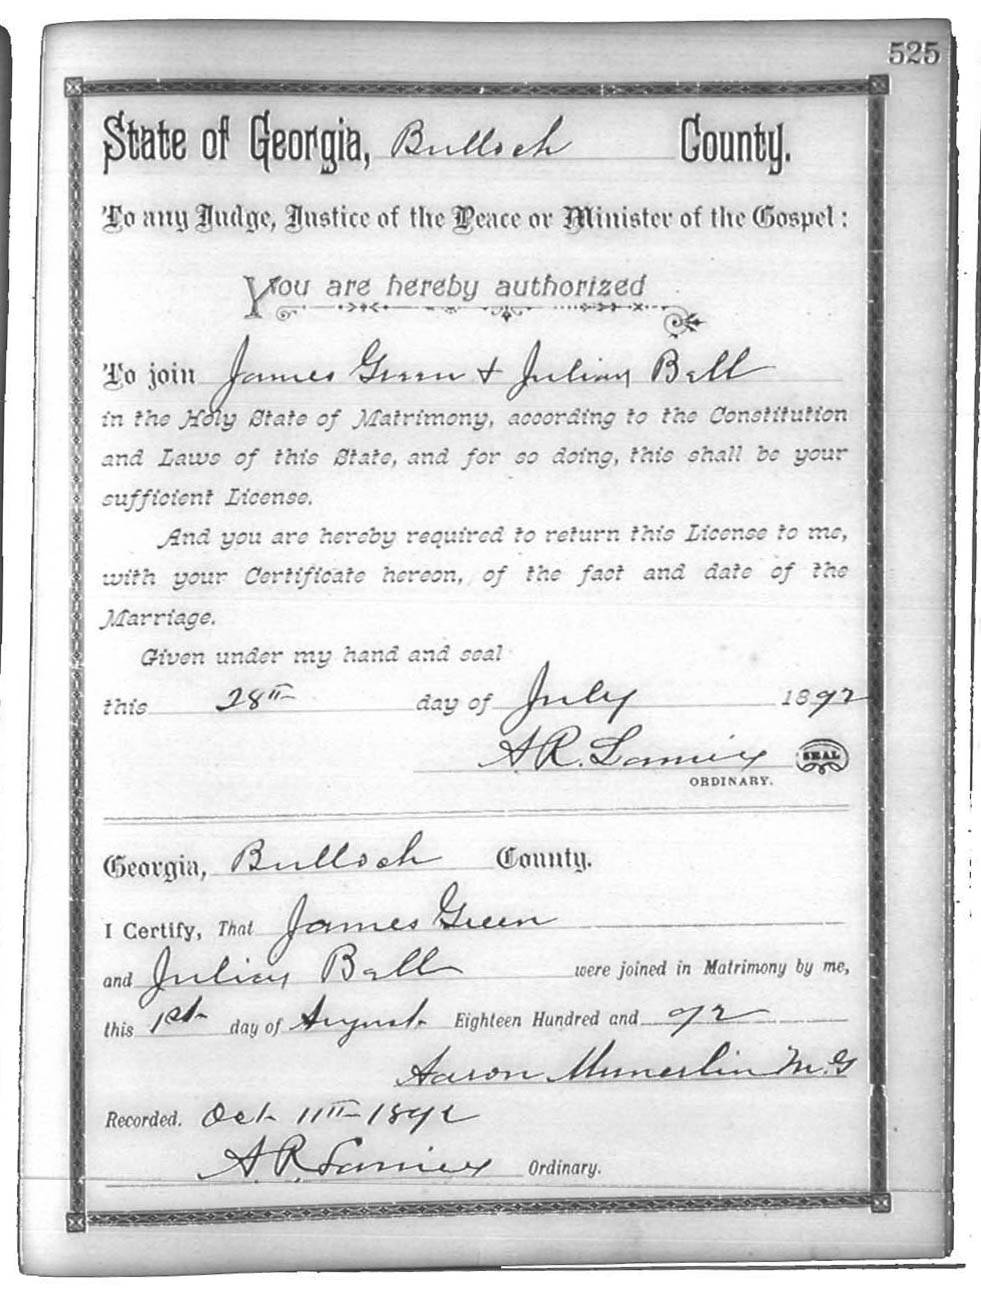 525
State of Georgia, Bulloch County.
To any Judge, Justice of the Peace or Minister of the Gospel:
You are hereby authorized
To join James Green & Julian Ball
in the Holy State of Matrimony, according to the Constitution
and Laws of this State, and for so doing, this shall be your
sufficient License.
And you are hereby required to return this License to me,
with your Certificate hereon, of the fact and date of the
Marriage.
Given under my hand and seal
this 28th day of July 1892
A R. Lanier SEAL
ORDINARY.
Georgia, Bulloch County.
I Certify, That James Green
and Julian Ball were joined in Matrimony by me,
this 1st day of August Eighteen Hundred and 92
Aaron Munerlin M.G
Recorded. Oct 11th 1892
A R Lanier Ordinary.